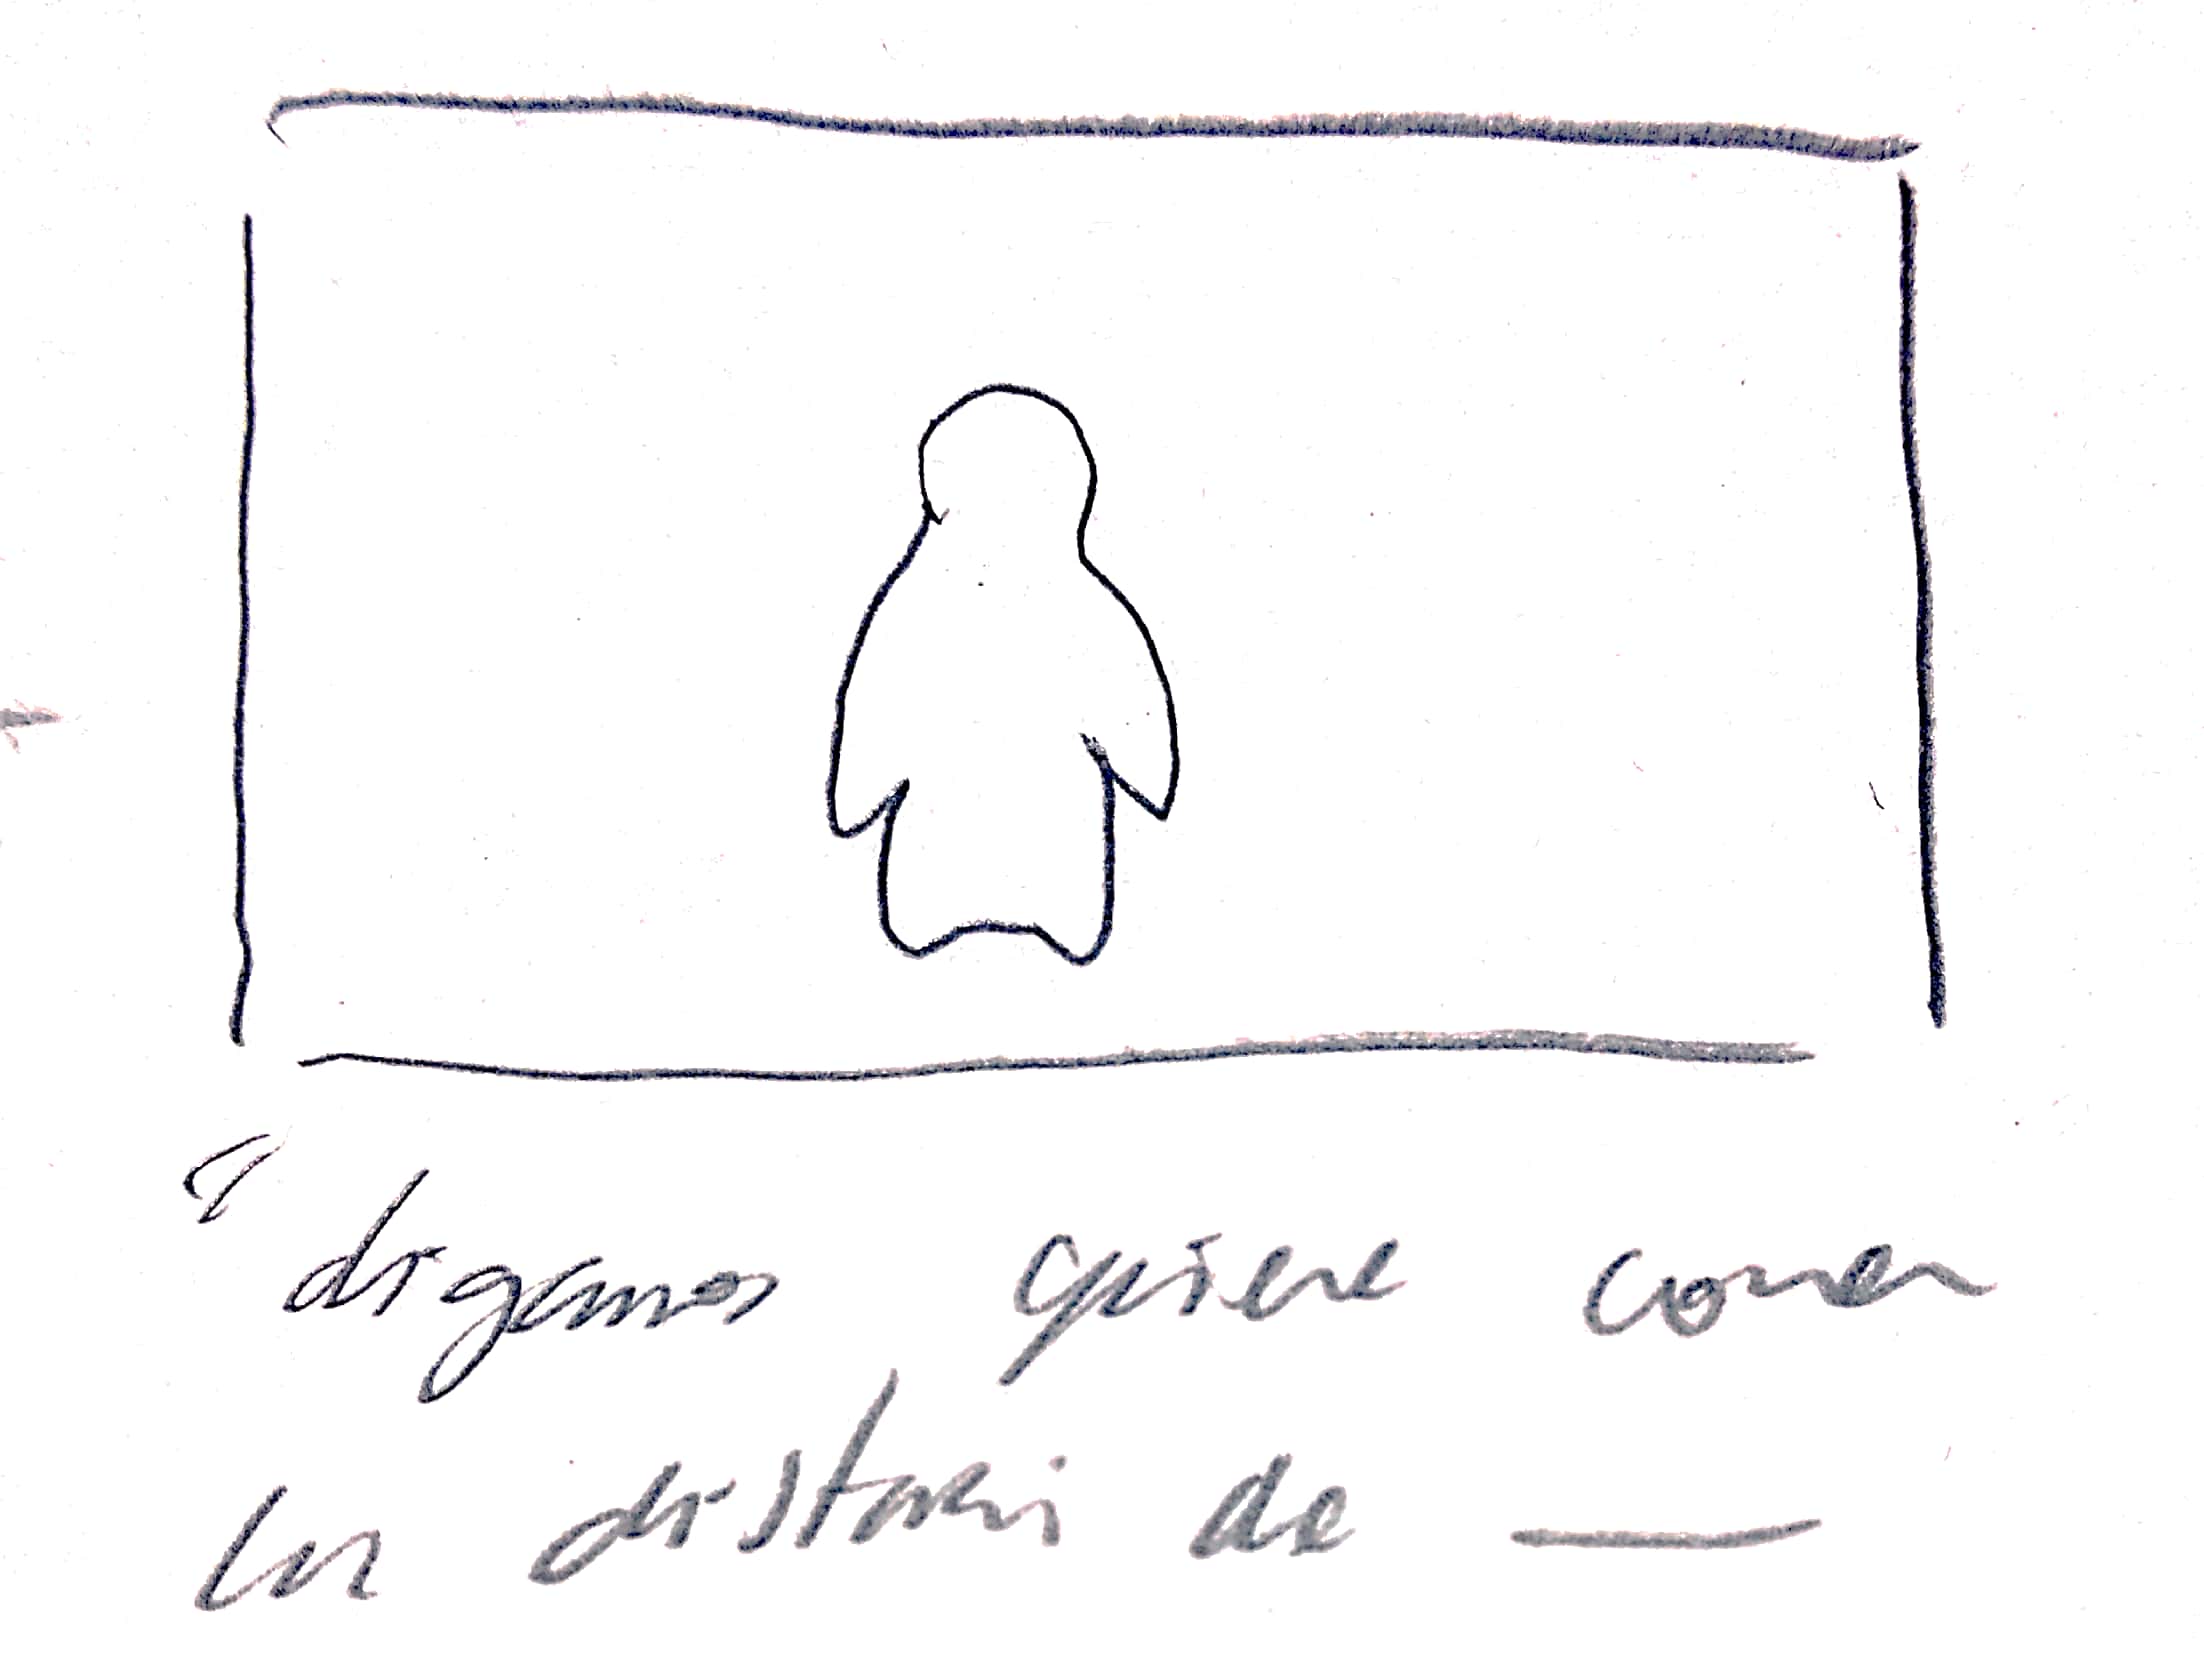 "digamos quiere correr
la distanci de —